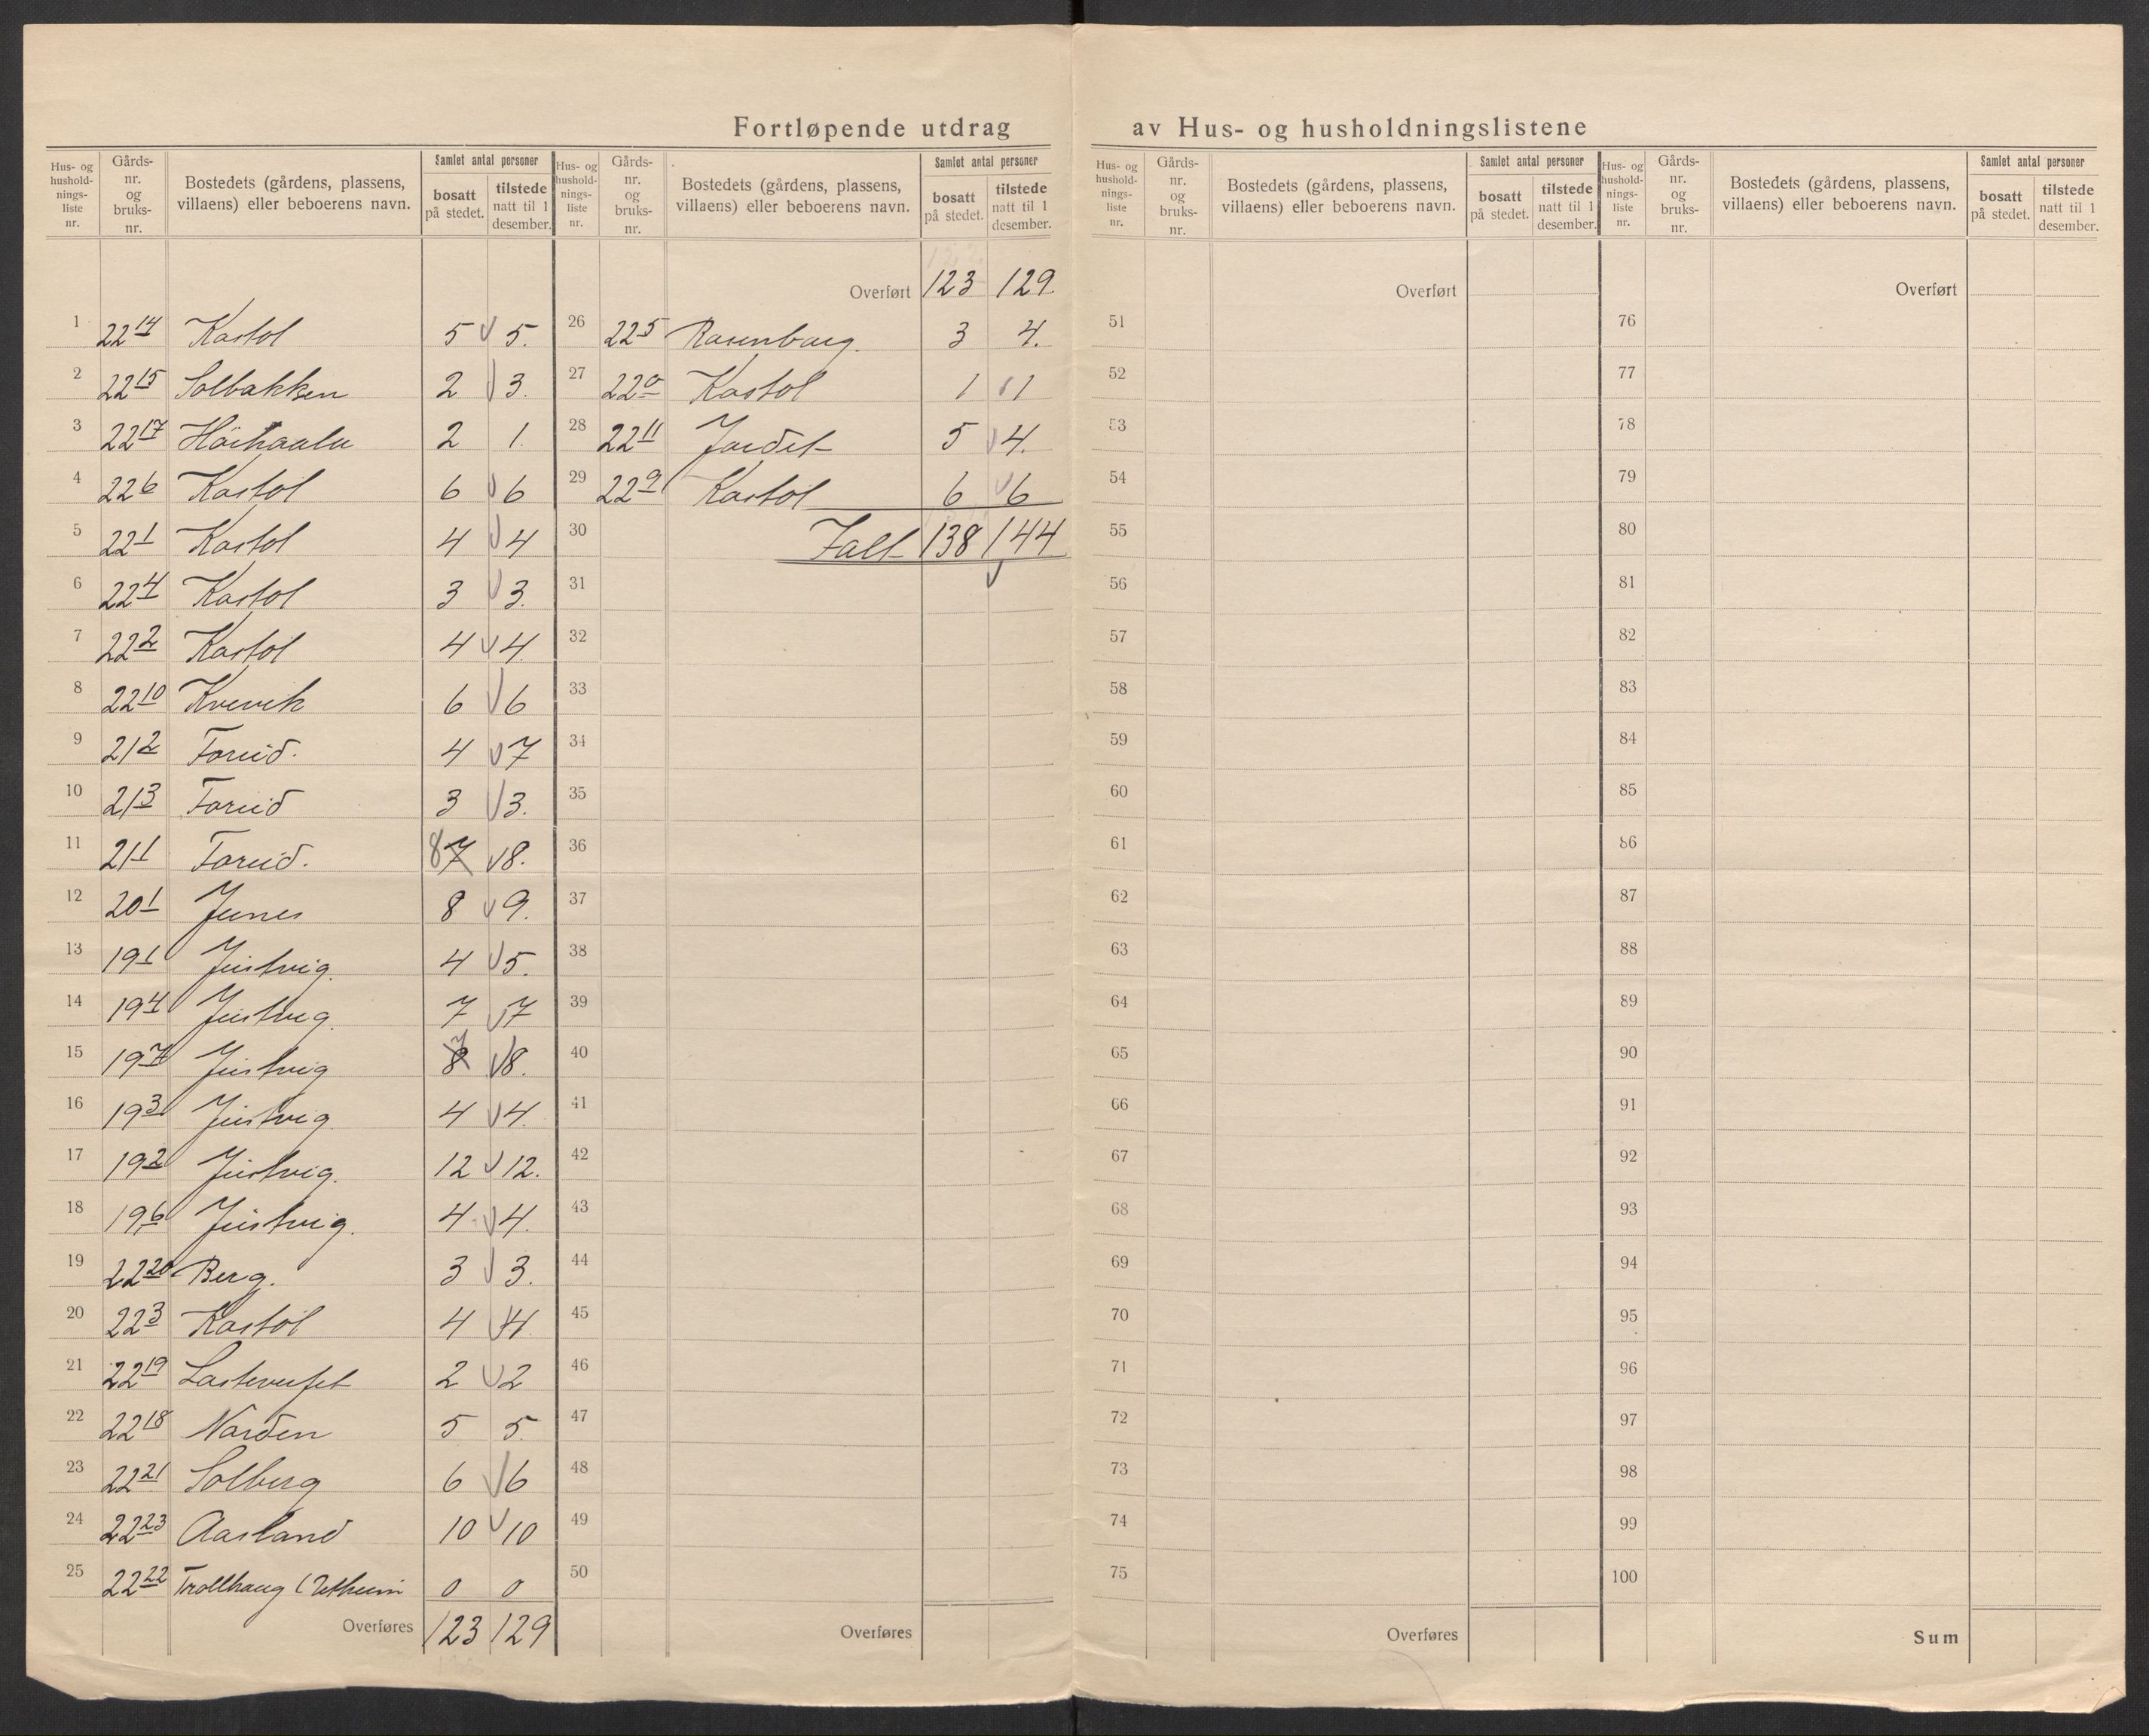 Fortløpende utdrag av Hus- og husholdningslistene
Hus- og husholdnings-liste nr. | Gårds-nr. og bruks-nr. | Bostedets (gårdens, plassens, villaens) eller beboerens navn. | Samlet antal personer | bosatt på stedet. | tilstede natt til 1 desember.
1 22 14 Kastol 5 5.
2 22 15 Solbakken 2 3.
3 22 17 2 1.
4 22 6 Kastol 6 6
5 22 1 Kastol 4 4
6 22 4 Kastol 3 3.
7 22 2 Kastol 4 4
8 22 10 Krevik 6 6
9 21 2 Foreid. 4 7
10 21 3 Foreid 3 3.
11 21 1 Foreid. 8 7 8.
12 20 1 8 9.
13 19 1 Justvig. 4 5.
14 19 4 Justvig. 7 7
15 19 7 Justvig 7 8 8.
16 19 3 Justvig 4 4.
17 19 2 Justvig. 12 12.
18 19 6 Justvig. 4 4.
19 22 20 Berg. 3 3.
20 22 3 Kastol 4 4
21 22 19 2 2
22 22 18 Norden 5 5
23 22 21 Solberg 6 6
24 22 23 Aasland 10 10
25 22 22 Trollhaug 0 0
Overføres 123 129
Hus- og husholdnings-liste nr. | Gårds-nr. og bruks-nr. | Bostedets (gårdens, plassens, villaens) eller beboerens navn. | Samlet antal personer | bosatt på stedet. | tilstede natt til 1 desember.
Overført 123 129.
26 22 5 3 4.
27 22 Kastol 1 1
28 22 11 Jordet 5 4.
29 22 9 Kastol 6 6
30 Ialt 138 144
31
32
33
34
35
36
37
38
39
40
41
42
43
44
45
46
47
48
49
50
Overføres
Hus- og husholdnings-liste nr. | Gårds-nr. og bruks-nr. | Bostedets (gårdens, plassens, villaens) eller beboerens navn. | Samlet antal personer | bosatt på stedet. | tilstede natt til 1 desember.
Overført
51
52
53
54
55
56
57
58
59
60
61
62
63
64
65
66
67
68
69
70
71
72
73
74
75
Overføres
Hus- og husholdnings-liste nr. | Gårds-nr. og bruks-nr. | Bostedets (gårdens, plassens, villaens) eller beboerens navn. | Samlet antal personer | bosatt på stedet. | tilstede natt til 1 desember.
Overført
76
77
78
79
80
81
82
83
84
85
86
87
88
89
90
91
92
93
94
95
96
97
98
99
100
Sum